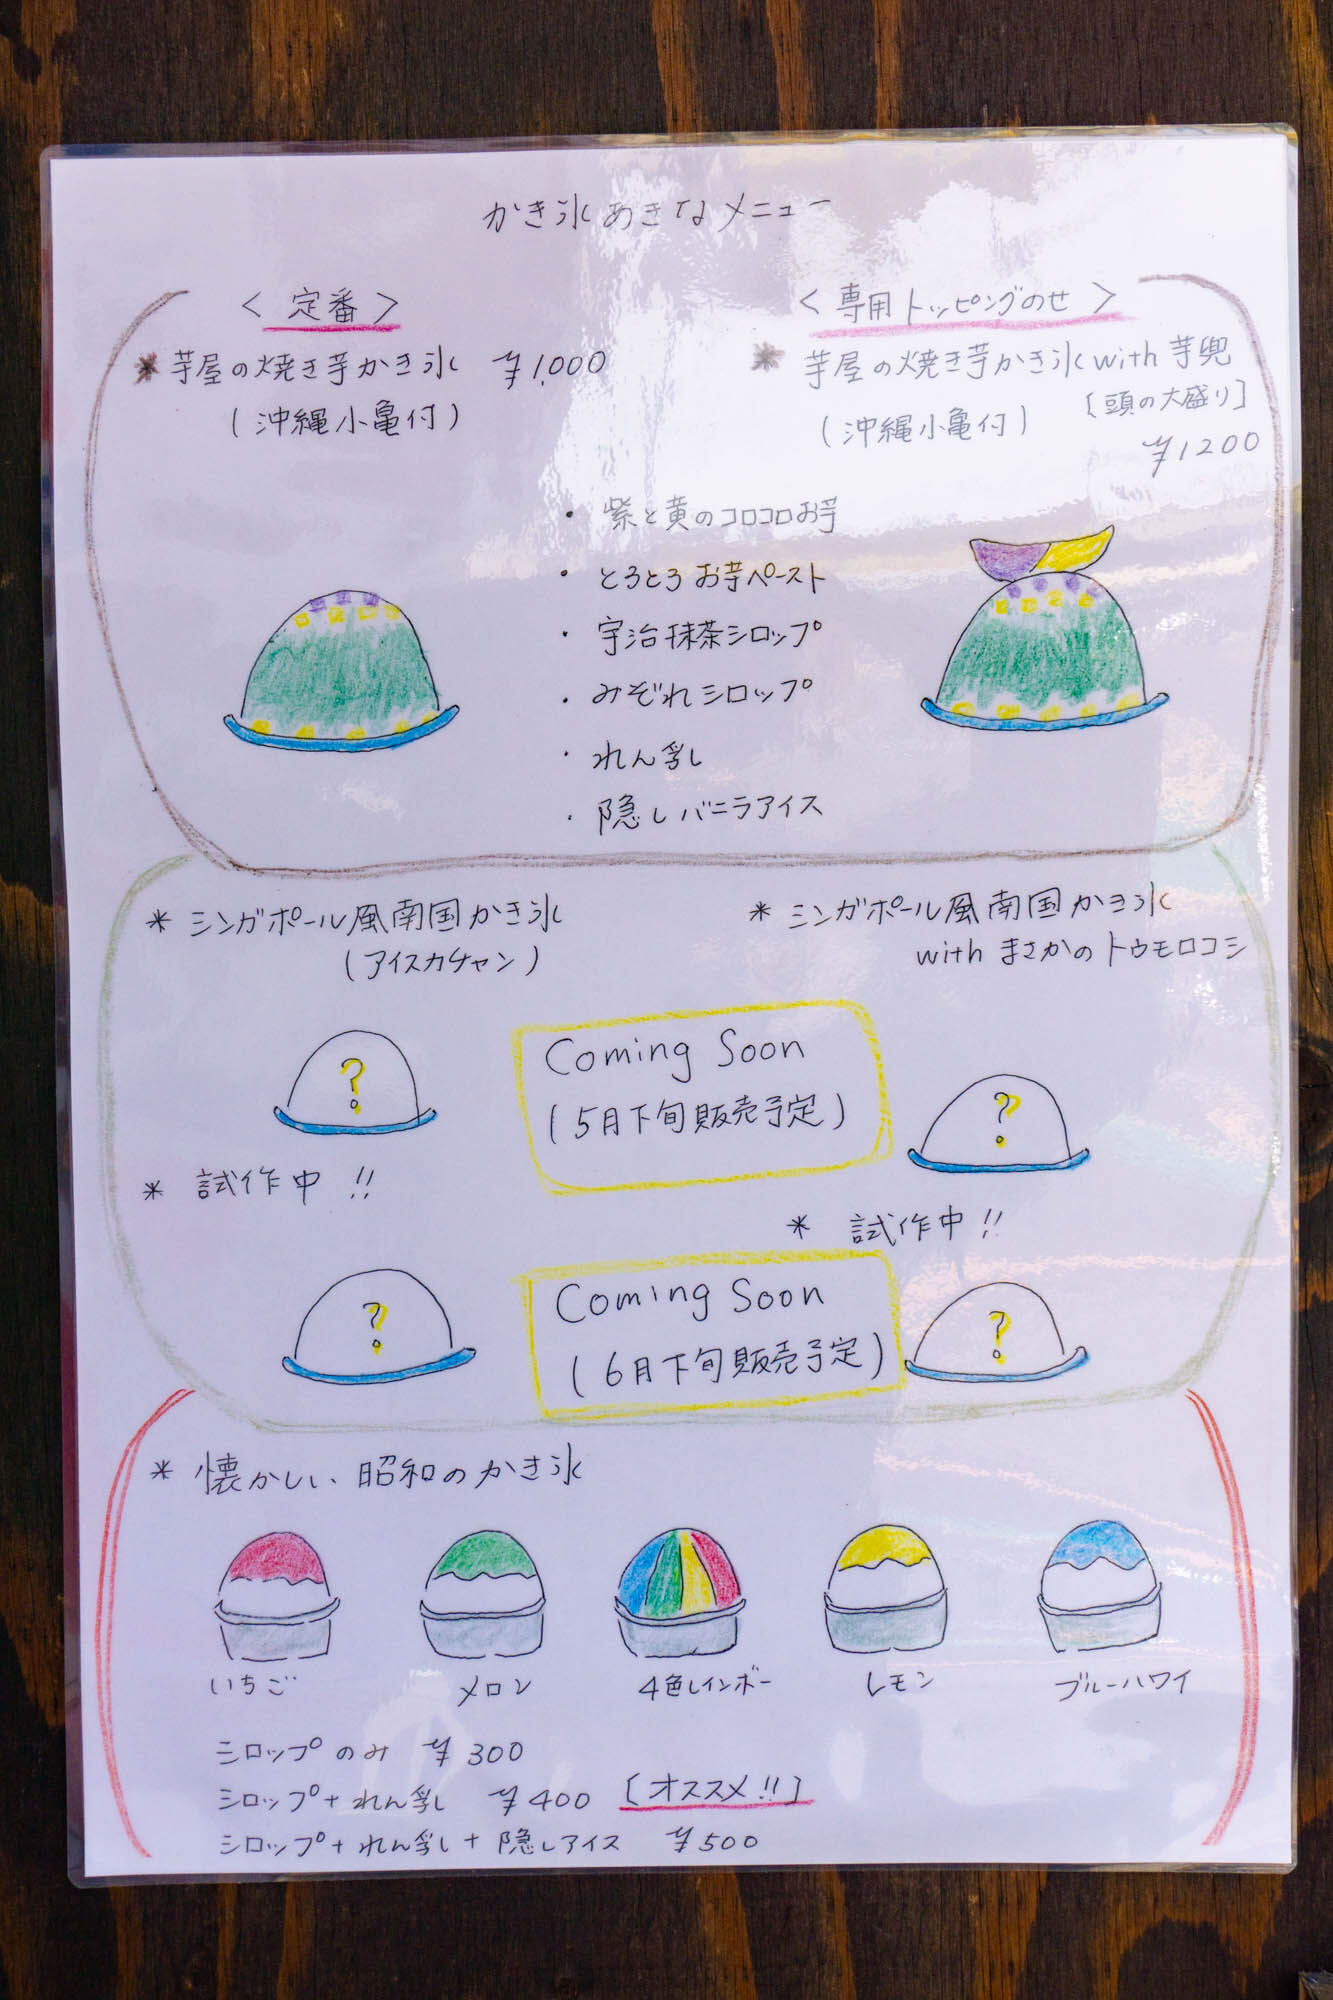 かき氷あきなメニュー
<定番>
* 芋屋の焼き芋かき氷 ¥1,000
(沖縄小亀付)
<専用トッピングのせ>
* 芋屋の焼き芋かき氷with芋兜
[頭の大盛り]
(沖縄小亀付)
¥1200
・紫と黄のコロコロお芋
・とろとろお芋ペースト
・宇治抹茶シロップ
・みぞれシロップ
・れん乳
・隠しバニラアイス
* シンガポール風南国かき氷
(アイスカチャン)
* シンガポール風南国かき氷
with まさかのトウモロコシ
?
Coming Soon
(5月下旬販売予定)
?
* 試作中!!
* 試作中!!
?
Coming Soon
(6月下旬販売予定)
?
* 懐かしい、昭和のかき氷
いちご メロン 4色レインボー レモン ブルーハワイ
シロップのみ ¥300
シロップ+れん乳 ¥400 [オススメ!!]
シロップ+れん乳+隠しアイス ¥500